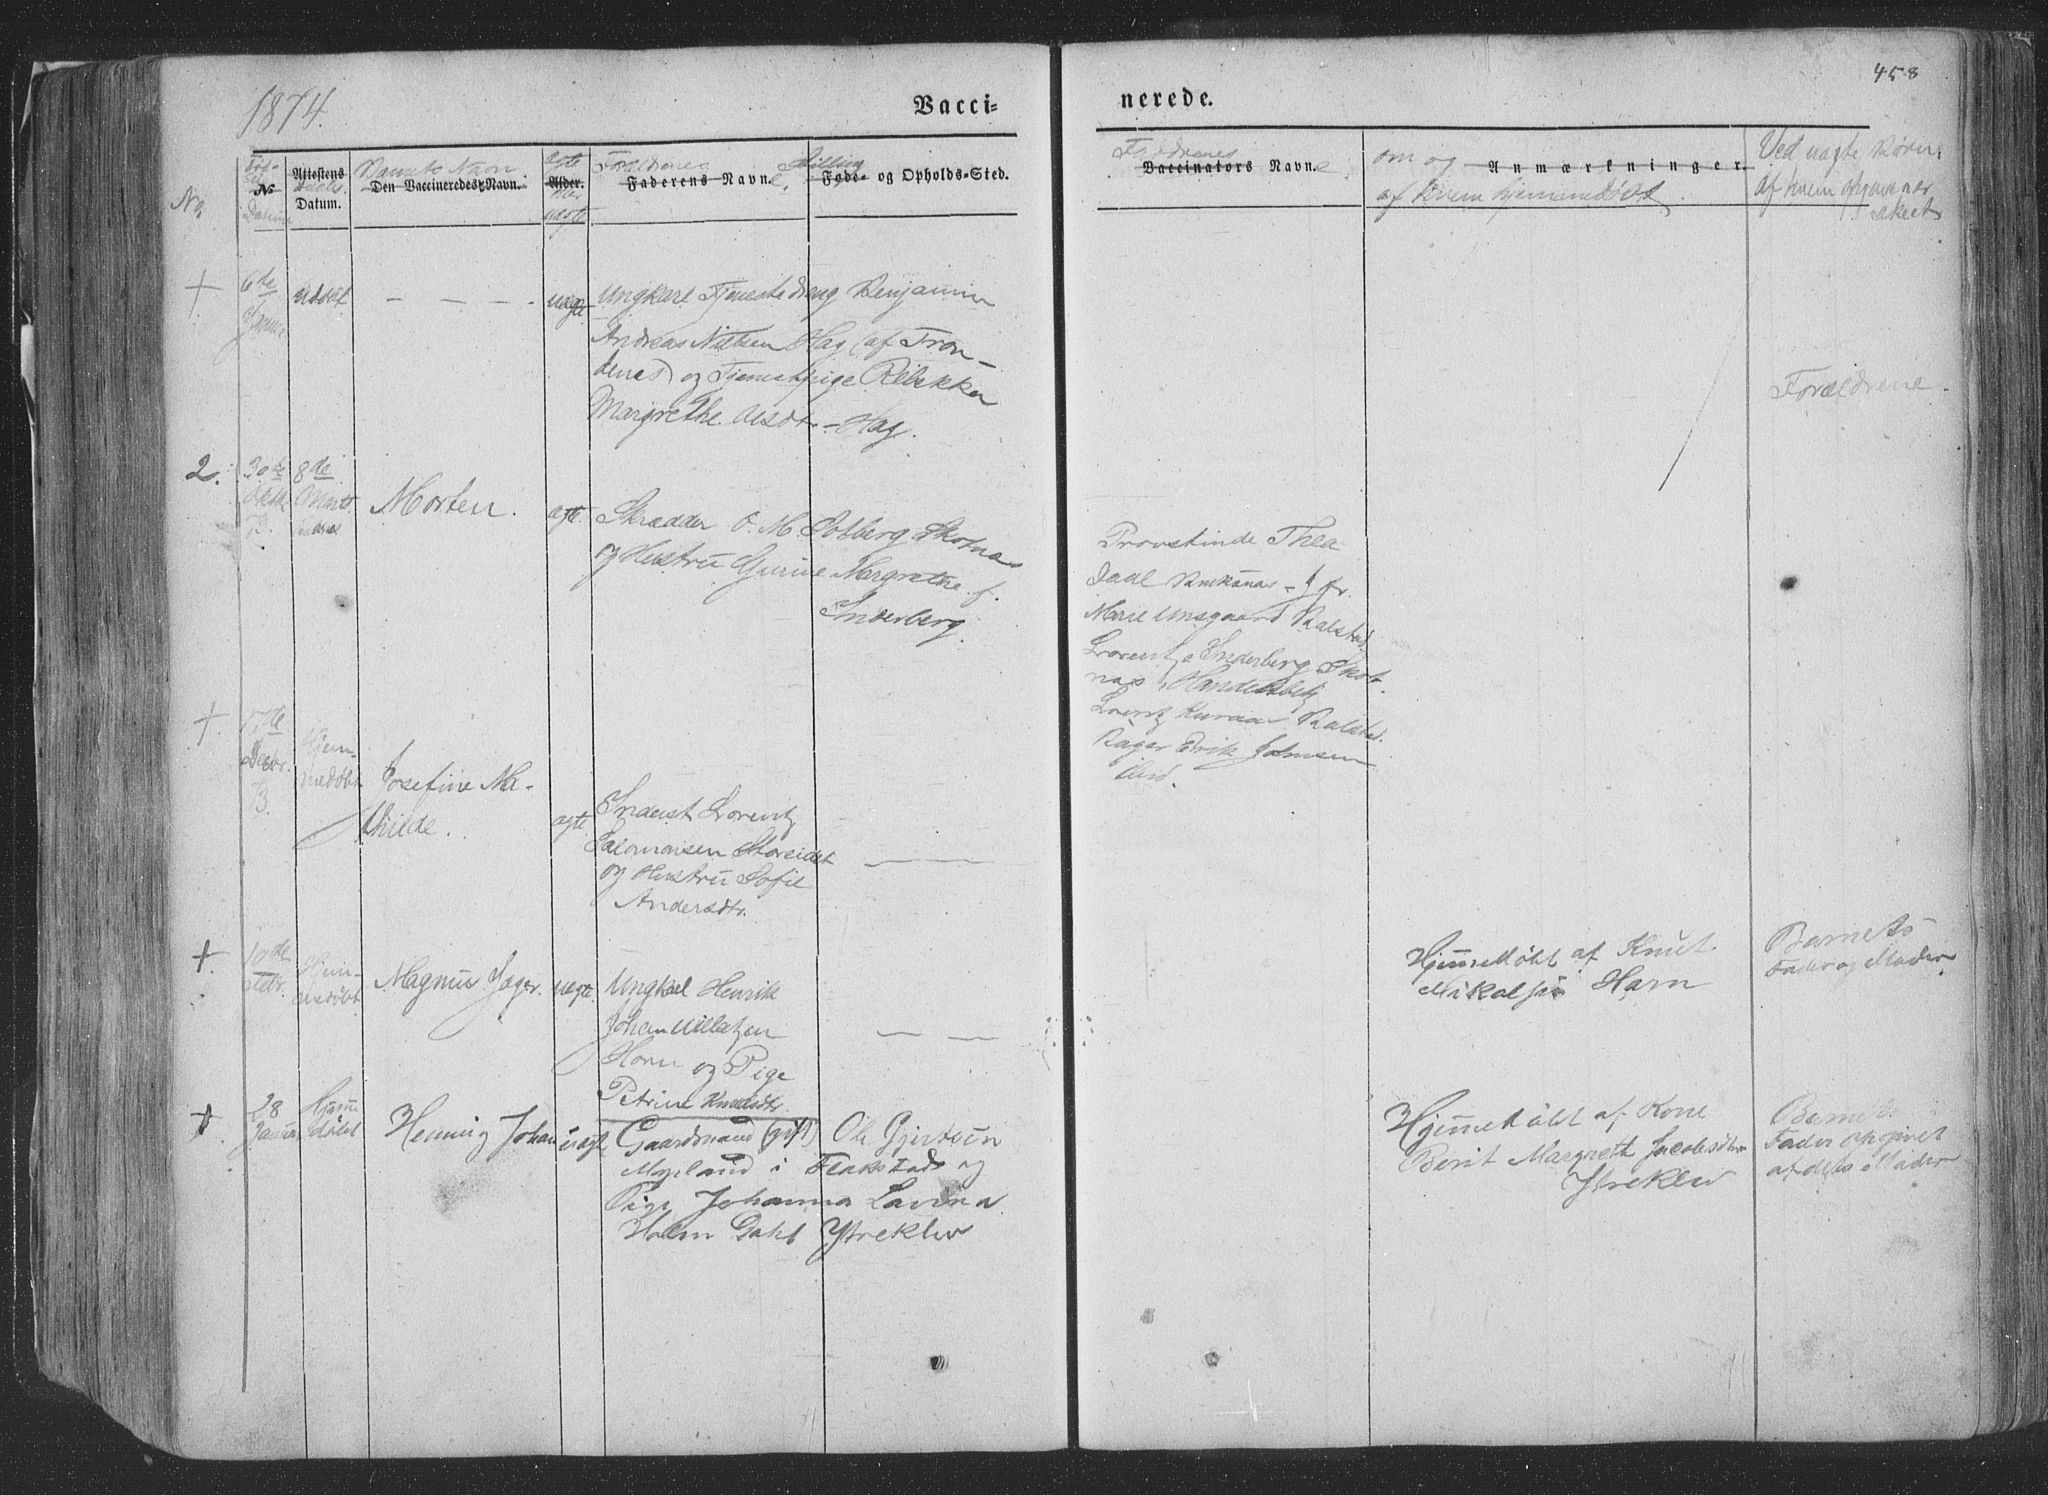 458
1874.
Vacci-
nerede.
No
Døb-
No
Datum
Attestens
Datum.
Barnets Navn
Den Vaccineredes Navn.
ægte
Alder.
eller
uægte
Forældrenes
Faderens Navn.
Stilling
Føde- og Opholds-Sted.
Vaccinators Navn.
om og
Anmærkninger.
af hvem hjemmedøbt
Ved uægte Børn:
af hvem opgaven er
skeet
+
6te
Januar
uddøbt
uægte
Ungkarl Tjenestedreng Benjamin
Andreas Nielsen Hag (af Tron-
denes) og Tjenestpige Rebekka
Margrethe Olesdtr - Hag.
Forældrene.
2.
30te
73
8de
Marts
Morten.
ægte.
Skrædder O. M. Solberg Skotnæs
og Hustru Gurine Margrethe f.
Inderberg.
Provstinde Thea
Daal Buksnæs - Jfr.
Marie Unsgaard Balstad
Lorentz Inderberg Skot-
næs, Handelsbetj
Lorentz Balstad.
Bager Erik Johnsen
ibid.
+
17de
Decbr.
73.
Hjem-
medøbt
Josefine Ma-
thilde.
ægte
Inderst Lorentz
Salomonsen Storeidet
og Hustru Sofie
Andersdtr.
+
10de
Febr.
Hjem-
medøbt
Magnus Jager.
uægte
Ungkarl Henrik
Johan
Horn og Pige
Petrine Knudsdtr
Hjemmedøbt af Knut
Mikalsen Horn
Barnets
Fader og Moder
+
28
Januar
Hjemme
døbt
Henning Johan
uægte
Gaardmand (gift) Ole Gjertsen
Myrland i Flakstad og
Pige Johanna Lavina
Holm Dahl Ystreklev
Hjemmedøbt af Kone
Berit Margreth Jacobsdtr
Ystreklev
Barnets
Fader opgivet
af dets Moder